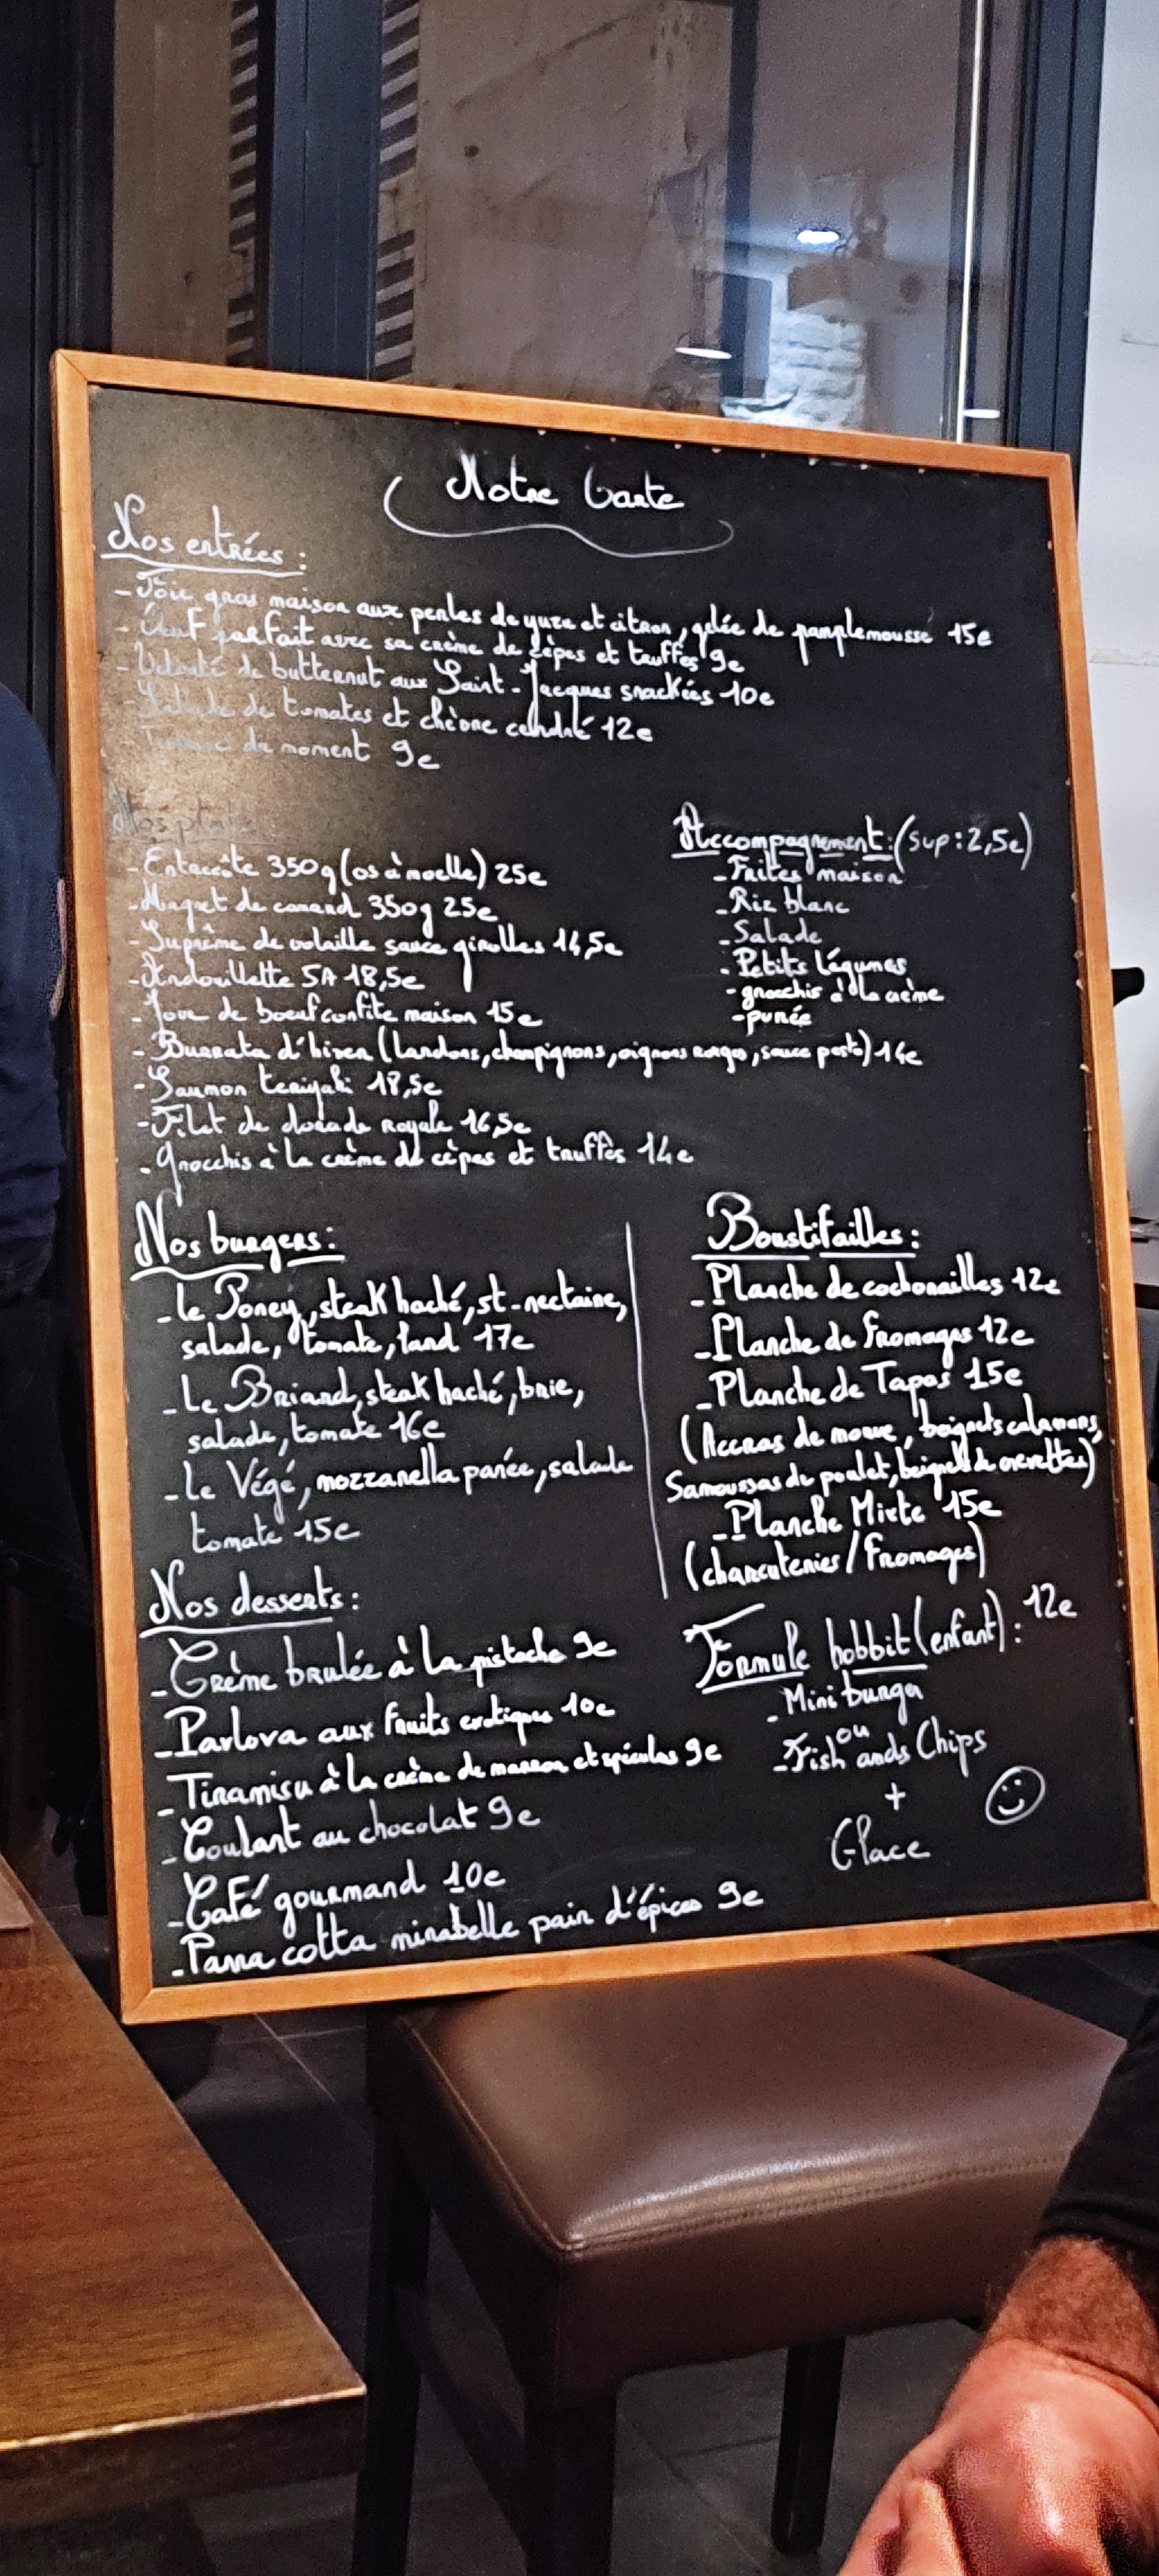 Notre Carte
Nos entrées :
- Foie gras maison aux perles de yuzu et citron, gelée de pamplemousse 15e
- Œuf parfait avec sa crème de cèpes et truffes 9e
- Velouté de butternut aux Saint-Jacques snackées 10e
- Salade de tomates et chèvre cendré 12e
du moment 9e
Nos plats
- Entrecôte 350g (os à moelle) 25e
- Magret de canard 350g 25e
- Suprême de volaille sauce girolles 14,5e
- Andouillette 5A 18,5e
- Joue de boeuf confite maison 15e
- Burrata d'hiver (lardons, champignons, oignons rouges, sauce pesto) 14e
- Saumon teriyaki 18,5e
- Filet de dorade royale 16,5e
- Gnocchis à la crème de cèpes et truffes 14e
Accompagnement : (sup : 2,5e)
- Frites maison
- Riz blanc
- Salade
- Petits légumes
- gnocchis à la crème
- purée
Nos burgers :
- Le Poney, steak haché, st-nectaire,
salade, tomate, lard 17e
- Le Briard, steak haché, brie,
salade, tomate 16e
- Le Végé, mozzarella panée, salade
tomate 15e
Boustifailles :
- Planche de cochonailles 12e
- Planche de fromages 12e
- Planche de Tapas 15e
(Accras de morue, beignets calamars,
Samoussas de poulet, beignets de crevettes)
- Planche Mixte 15e
(charcuteries / Fromages)
Nos desserts :
- Crème brulée à la pistache 9e
- Pavlova aux fruits exotiques 10e
- Tiramisu à la crème de marron et spéculos 9e
- Coulant au chocolat 9e
- Café gourmand 10e
- Panna cotta mirabelle pain d'épices 9e
Formule hobbit (enfant) : 12e
- Mini burger
ou
- Fish ands Chips
+
Glace